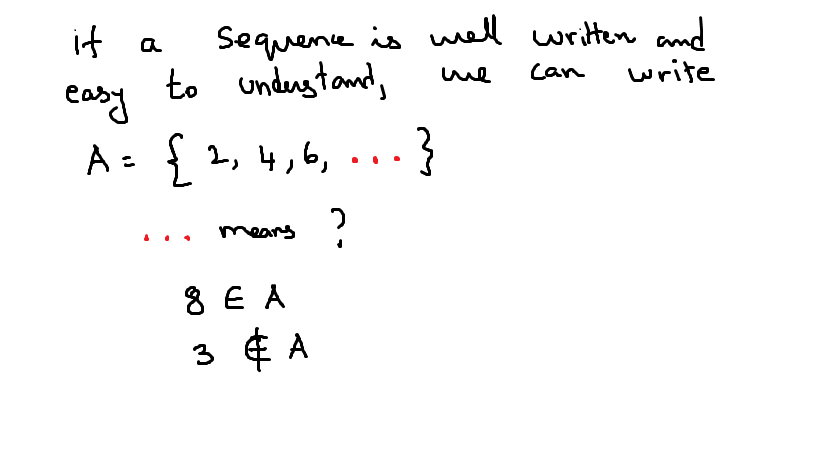 if a sequence is well written and
easy to understand, we can write
A = { 2, 4, 6, ... }
... means ?
8 ∈ A
3 ∉ A